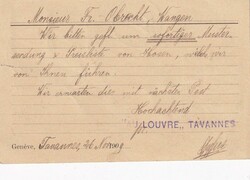 Monsieur Fr. Obrecht, Wangen
Wir bitten gefl. um sofortige Muster-
sendung & Preisliste von Ihnen, welche wir
von Ihnen führen.
Wir erwarten dies mit nächster Post
Hochachtend
LOUVRE,, TAVANNES
Genève, Tavannes, 26.